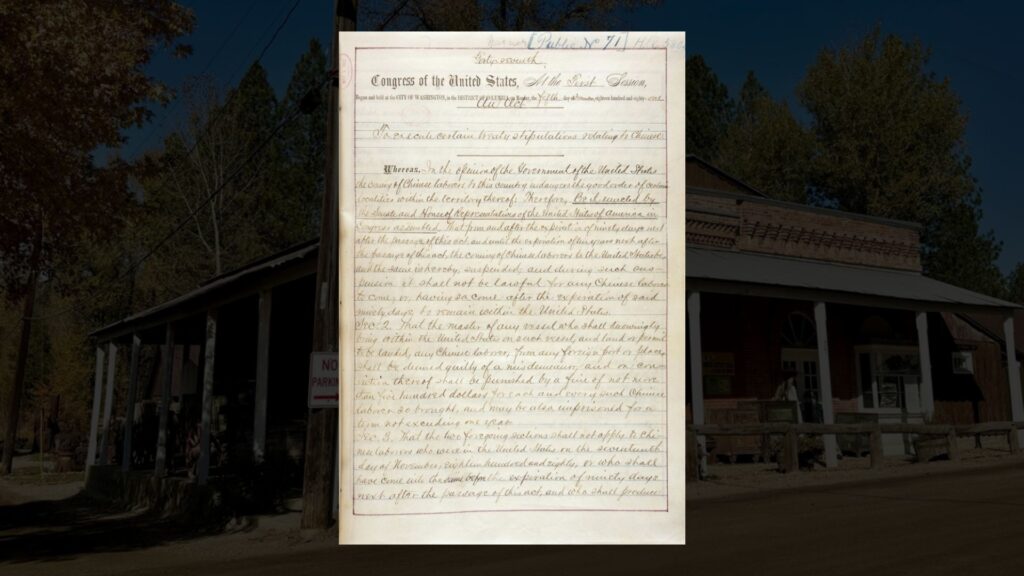 [Public No 71]
Forty-seventh
Congress of the United States, At the First Session,
Begun and held at the CITY OF WASHINGTON, in the DISTRICT OF COLUMBIA, on Monday, the fifth day of December, eighteen hundred and eighty-one
An Act
To execute certain treaty stipulations relating to Chinese.
Whereas, In the opinion of the Government of the United States
the coming of Chinese laborers to this country endangers the good order of certain
localities within the territory thereof: Therefore, Be it enacted by
the Senate and House of Representatives of the United States of America in
Congress assembled, That from and after the expiration of ninety days next
after the passage of this act, and until the expiration of ten years next after
the passage of this act, the coming of Chinese laborers to the United States be,
and the same is hereby, suspended; and during such sus-
pension it shall not be lawful for any Chinese laborer
to come, or, having so come after the expiration of said
ninety days, to remain within the United States.
Sec. 2. That the master of any vessel who shall knowingly
bring within the United States on such vessel, and land or permit
to be landed, any Chinese laborer, from any foreign port or place,
shall be deemed guilty of a misdemeanor, and on con-
viction thereof shall be punished by a fine of not more
than five hundred dollars for each and every such Chinese
laborer so brought, and may be also imprisoned for a
term not exceeding one year.
Sec. 3. That the two foregoing sections shall not apply to Chi-
nese laborers who were in the United States on the seventeenth
day of November, eighteen hundred and eighty, or who shall
have come into the same before the expiration of ninety days
next after the passage of this act, and who shall produce
NO
PARKIN